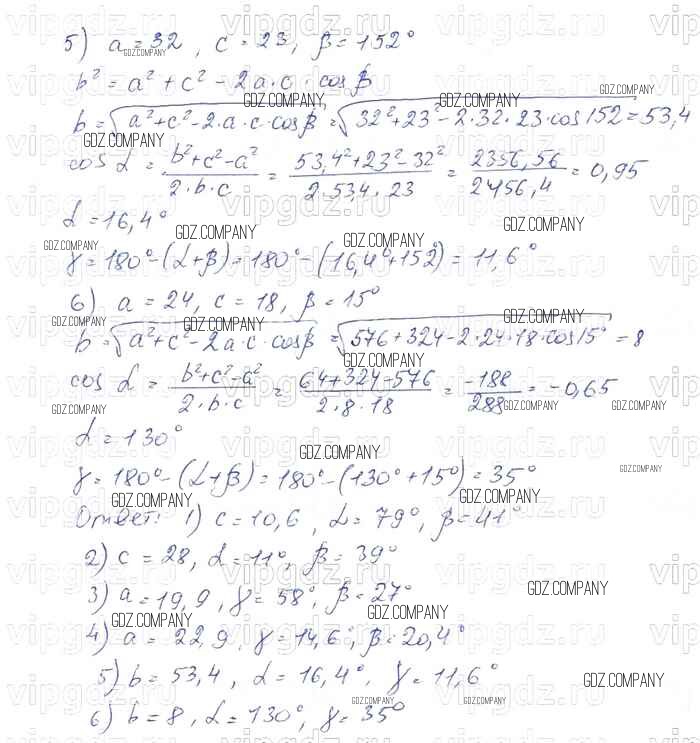 5) a = 32, c = 23, β = 152°
b² = a² + c² - 2a·c·cosβ
b = √a²+c²-2·a·c·cosβ = √32²+23²-2·32·23·cos152 = 53,4
cos α = b²+c²-a² / 2·b·c = 53,4²+23²-32² / 2·53,4·23 = 2356,56 / 2456,4 = 0,95
α = 16,4°
γ = 180°-(α+β) = 180°-(16,4°+152°) = 11,6°
6) a = 24, c = 18, β = 15°
b = √a²+c²-2a·c·cosβ = √576+324-2·24·18·cos15° = 8
cos α = b²+c²-a² / 2·b·c = 64+324-576 / 2·8·18 = -188 / 288 = -0,65
α = 130°
γ = 180°-(α+β) = 180°-(130°+15°) = 35°
Ответ: 1) c = 10,6, α = 79°, β = 41°
2) c = 28, α = 11°, β = 39°
3) a = 19,9, γ = 58°, β = 27°
4) a = 22,9, γ = 14,6°, β = 20,4°
5) b = 53,4, α = 16,4°, γ = 11,6°
6) b = 8, α = 130°, γ = 35°